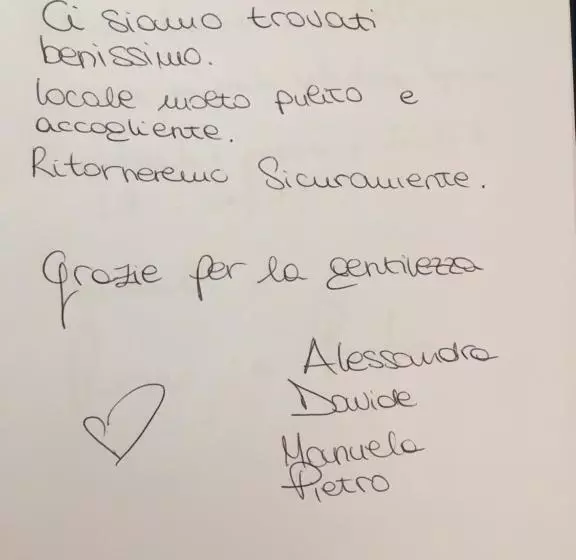 Ci siamo trovati
benissimo.
Locale molto pulito e
accogliente.
Ritorneremo Sicuramente.
Grazie per la gentilezza
Alessandra
Davide
Manuela
Pietro